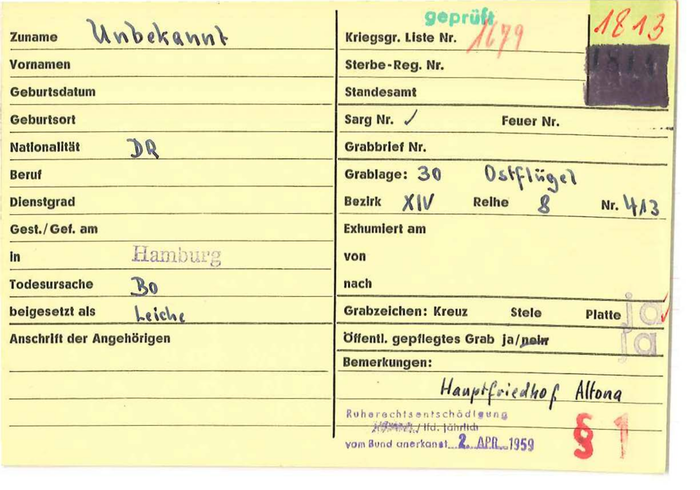 geprüft
1813
Zuname Unbekannt
Kriegsgr. Liste Nr. 1679
Vornamen
Sterbe-Reg. Nr.
Geburtsdatum
Standesamt
Geburtsort
Sarg Nr. ✓ Feuer Nr.
Nationalität DR
Grabbrief Nr.
Beruf
Grablage: 30 Ostflügel
Dienstgrad
Bezirk XIV Reihe 8 Nr. 413
Gest./Gef. am
Exhumiert am
in Hamburg
von
Todesursache Bo
nach
beigesetzt als Leiche
Grabzeichen: Kreuz Stele Platte ja ✓
Anschrift der Angehörigen
Öffentl. gepflegtes Grab ja/nein ja
Bemerkungen:
Hauptfriedhof Altona
Ruherechtsentschädigung
/ lfd. jährlich
vom Bund anerkannt 2. APR. 1959
§ 1